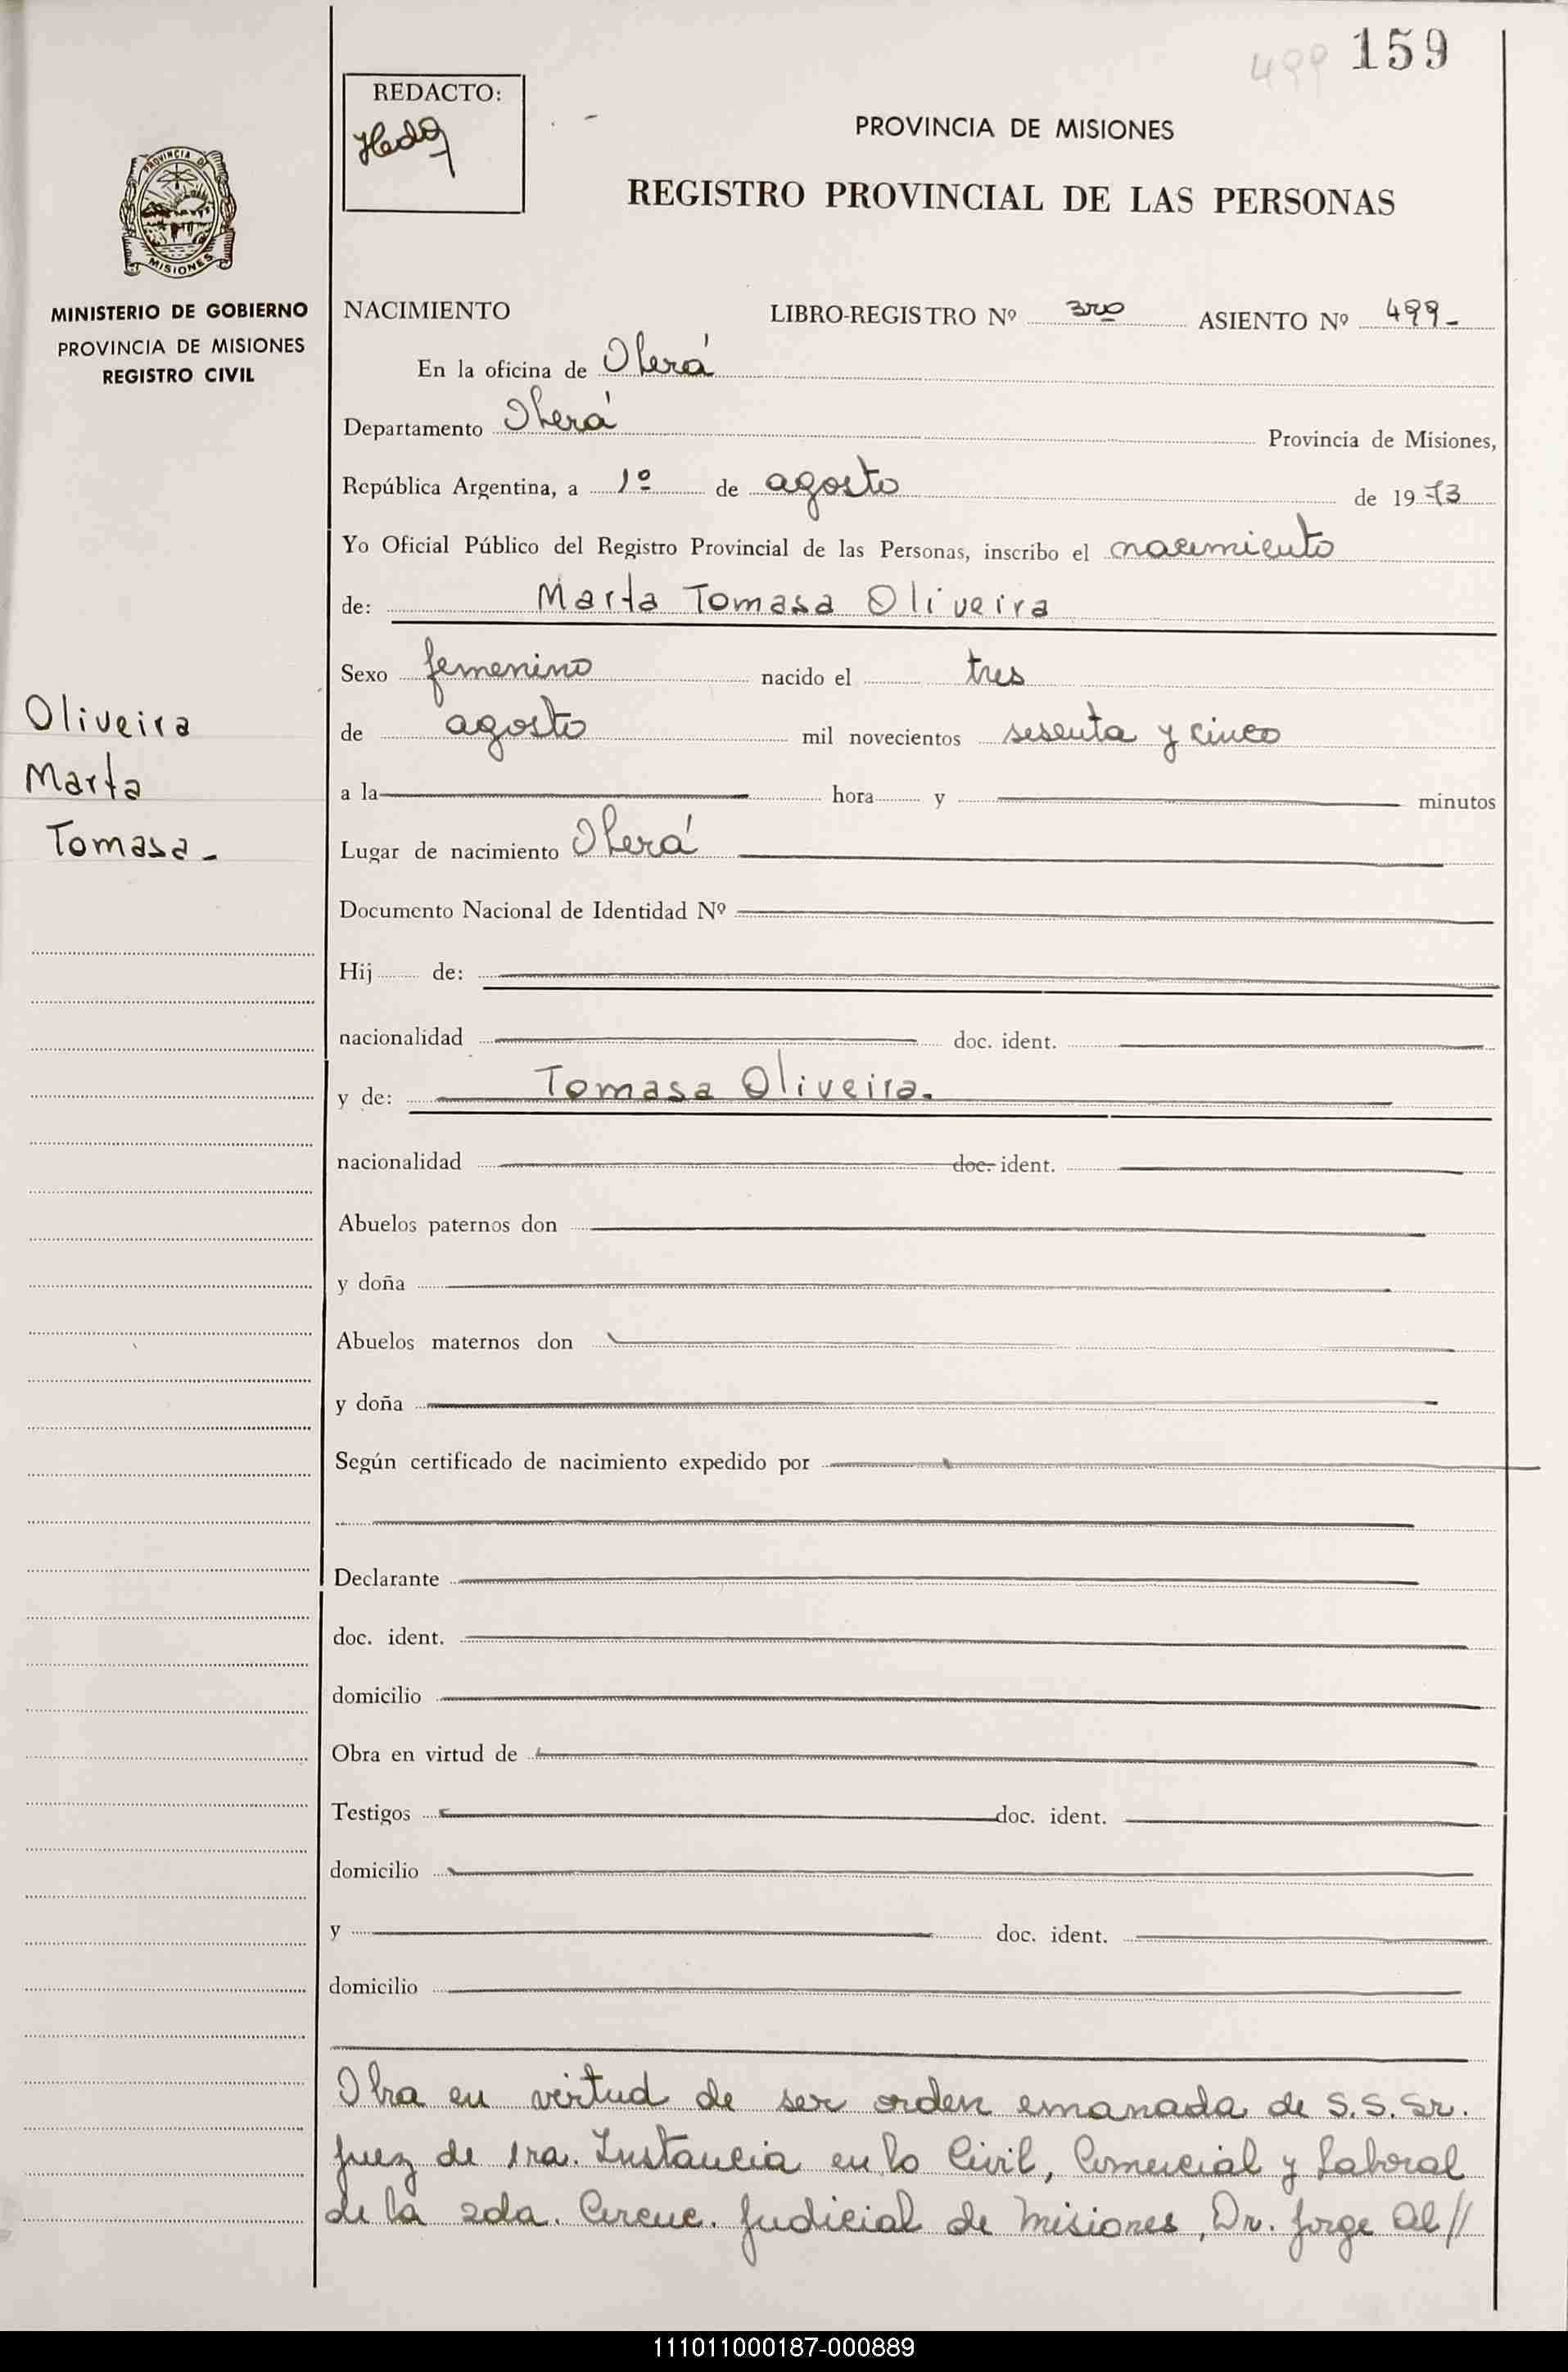 499 159
REDACTO:
PROVINCIA DE MISIONES
REGISTRO PROVINCIAL DE LAS PERSONAS
PROVINCIA DE
MISIONES
MINISTERIO DE GOBIERNO
PROVINCIA DE MISIONES
REGISTRO CIVIL
NACIMIENTO LIBRO-REGISTRO Nº 3ro ASIENTO Nº 499-
En la oficina de Oberá
Departamento Oberá Provincia de Misiones,
República Argentina, a 1º de agosto de 1973
Yo Oficial Público del Registro Provincial de las Personas, inscribo el nacimiento
de: Marta Tomasa Oliveira
Sexo femenino nacido el tres
de agosto mil novecientos sesenta y cinco
a la hora y minutos
Lugar de nacimiento Oberá
Oliveira
Marta
Tomasa-
Documento Nacional de Identidad Nº
Hij de:
nacionalidad doc. ident.
y de: Tomasa Oliveira.
nacionalidad doc. ident.
Abuelos paternos don
y doña
Abuelos maternos don
y doña
Según certificado de nacimiento expedido por
Declarante
doc. ident.
domicilio
Obra en virtud de
Testigos doc. ident.
domicilio
y doc. ident.
domicilio
Obra en virtud de ser orden emanada de S.S. Sr.
Juez de 1ra. Instancia en lo Civil, Comercial y Laboral
de la 2da. Circuc. Judicial de Misiones, Dr. Jorge Al//
111011000187-000889